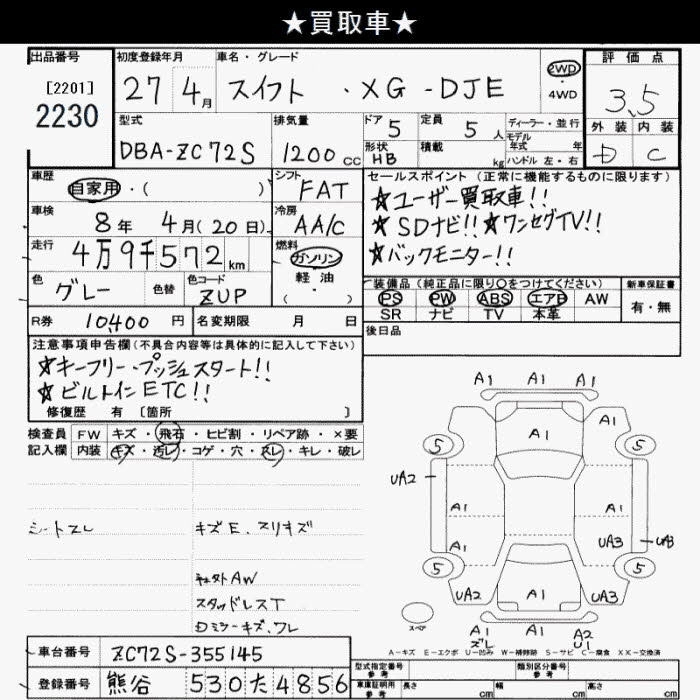 ★買取車★
出品番号
[2201]
2230
初度登録年月
27年 4月
車名・グレード
スイフト ・XG-DJE
2WD
・
4WD
評価点
3.5
外装 内装
D C
型式
DBA-ZC72S
排気量
1200cc
ドア 5
定員 5人
ディーラー・並行
モデル
年式 年
形状 HB
積載 kg
ハンドル 左・右
車歴
自家用・( )
シフト
FAT
セールスポイント (正常に機能するものに限ります)
★ユーザー買取車!!
★SDナビ!!★ワンセグTV!!
★バックモニター!!
車検
8年 4月(20日)
冷房
AA/C
走行
4万9千572km
燃料
ガソリン
軽・油
・( )
色 グレー
色替
色コード
ZUP
装備品 (純正品に限り○をつけてください)
PS PW ABS エアB AW
SR ナビ TV 本革
新車保証書
有・無
R券 10400円
名変期限 月 日
後日品
注意事項申告欄(不具合内容等は具体的に記入して下さい)
★キーフリー・プッシュスタート!!
★ビルトインETC!!
修復歴 有 〔箇所 〕
検査員 FW キズ・飛石・ヒビ割・リペア跡・×要
記入欄 内装 キズ・汚レ・コゲ・穴・スレ・キレ・破レ
シートスレ
キズE、スリキズ
AW
スタッドレスT
Dミラーキズ、ワレ
A1 A1 A1
5 A1 5
UA2
A1 A1
A1 UA3 UA3
5 5
UA2 A1 UA3
A1 A1 A2
ズレ U1
スペア
A-キズ E-エクボ U-凹み W-補修跡 S-サビ C-腐食 XX-交換済
車台番号 ZC72S-355145
登録番号 熊谷 530た4856
型式指定番号
参考
類別区分番号
参考
車庫証明用
参考
長さ cm
幅 cm
高さ cm